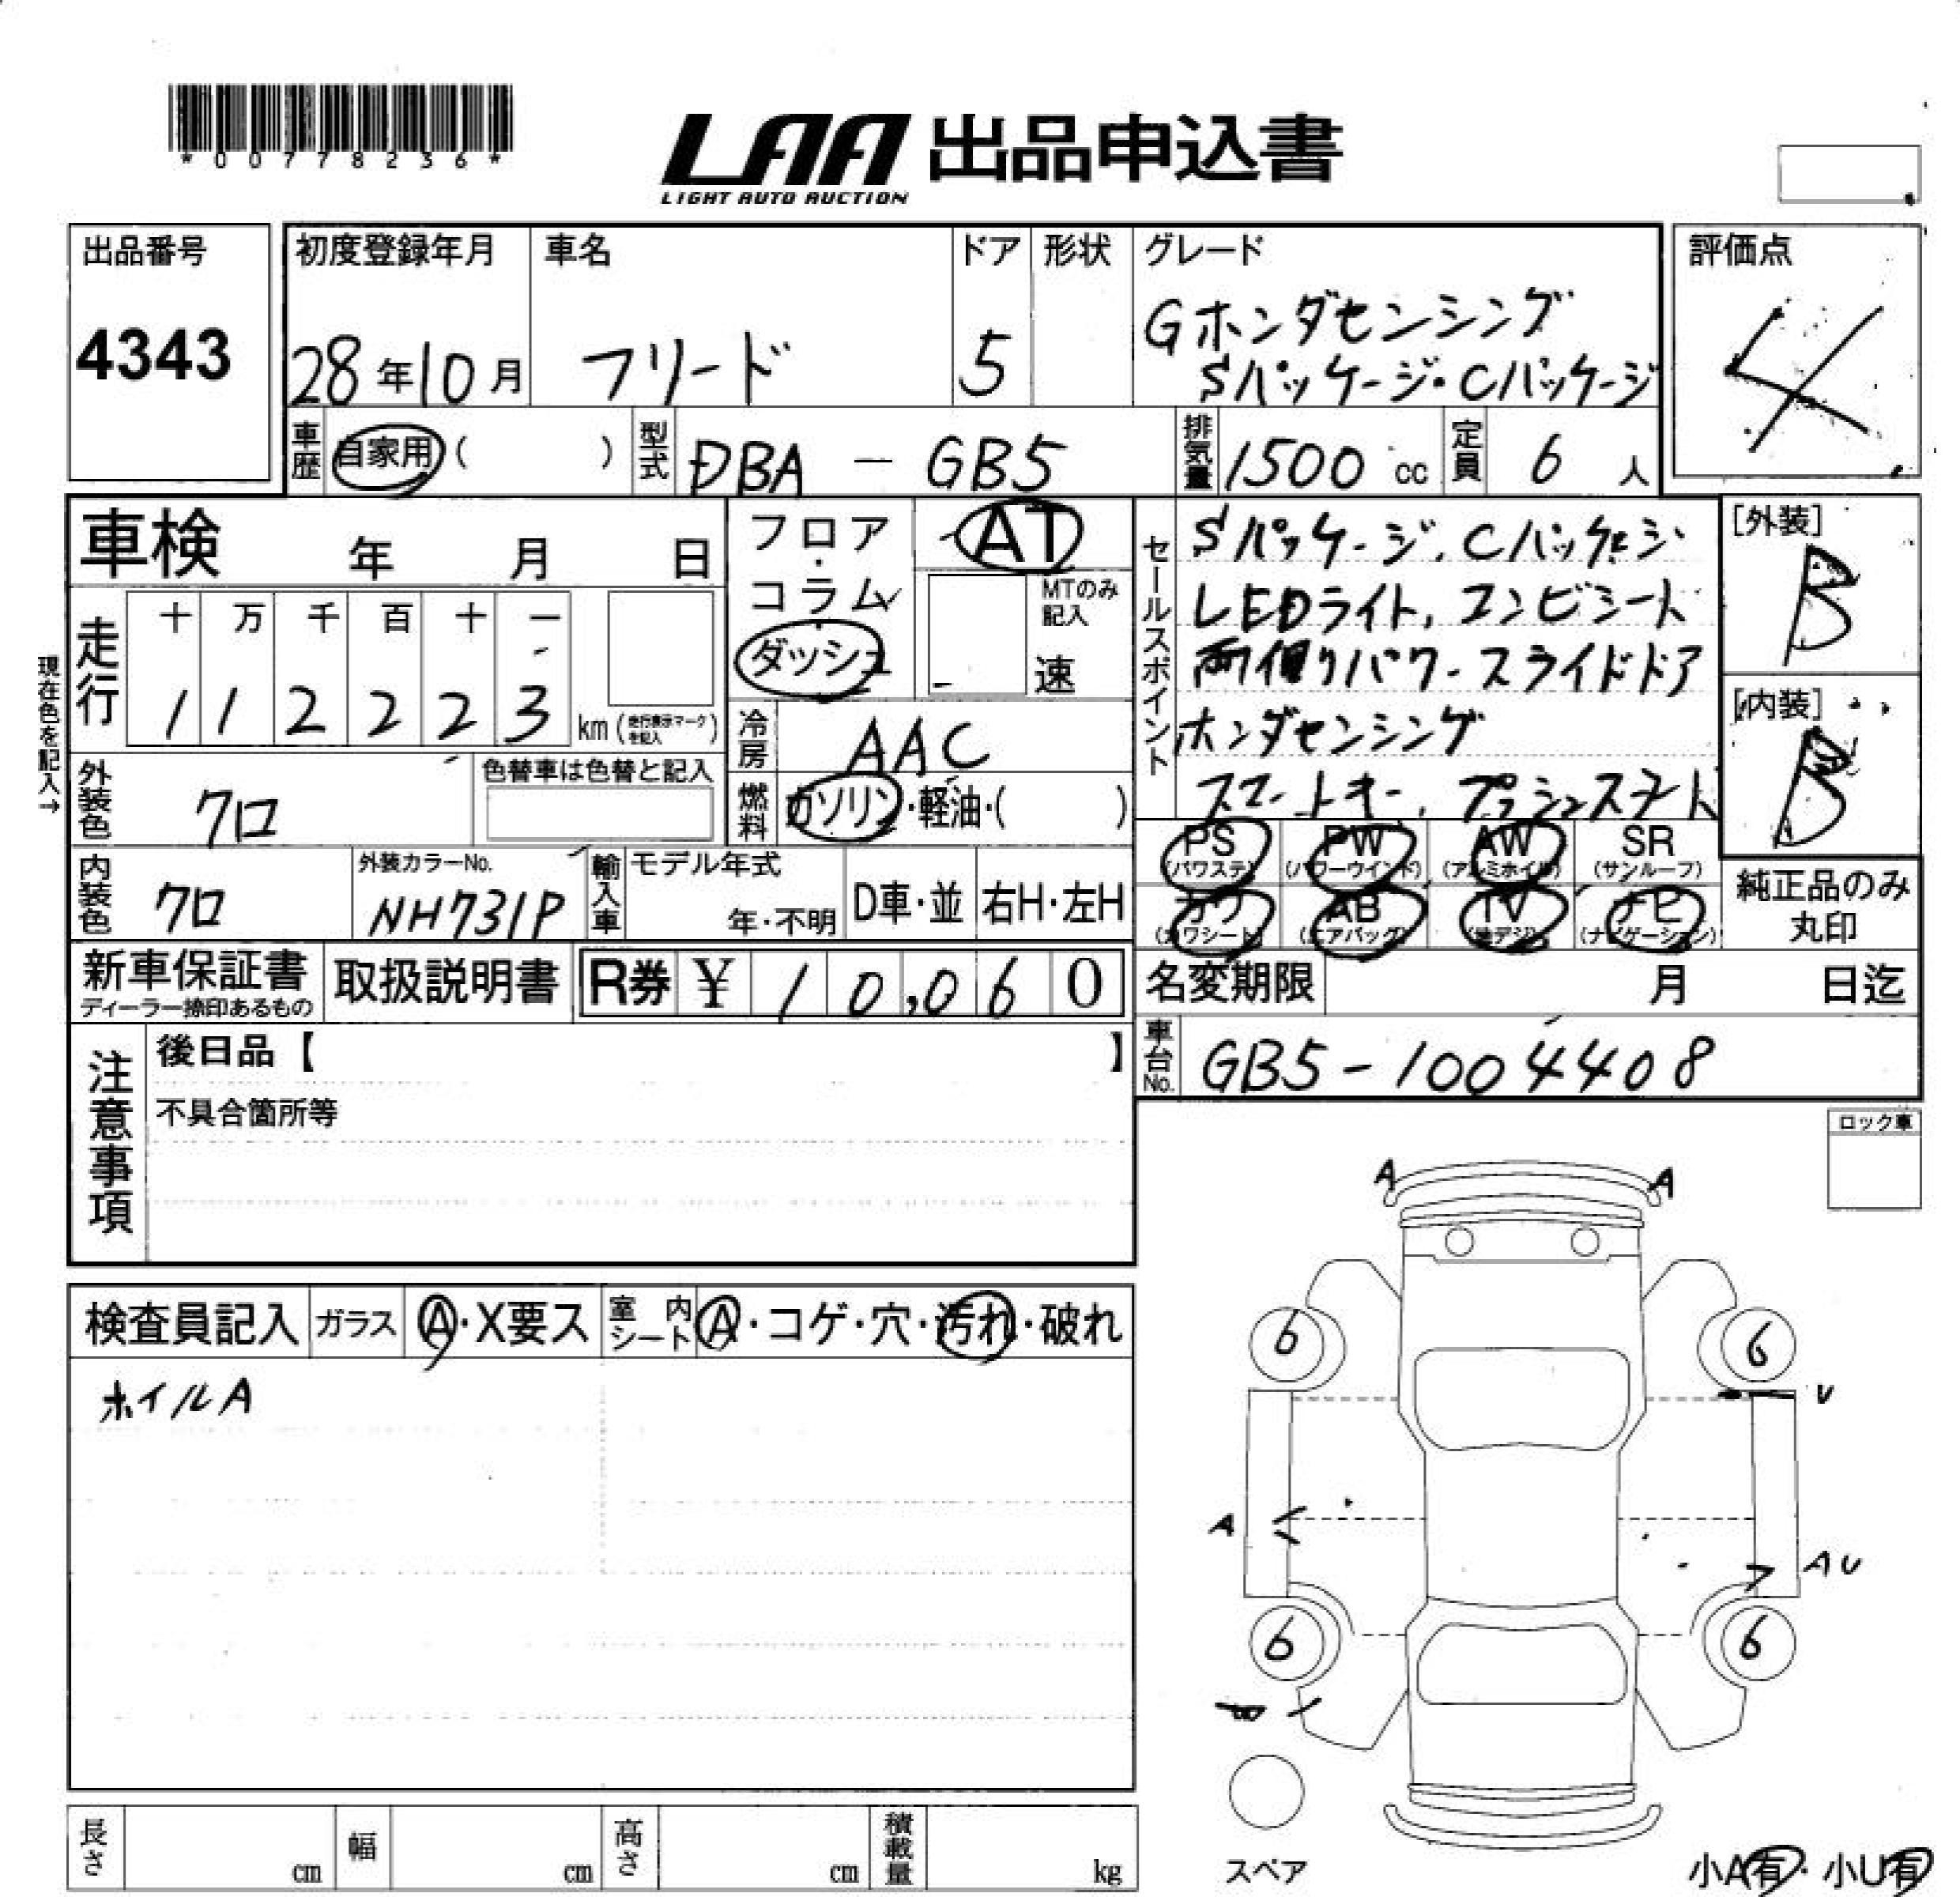 *00778236*
LAA 出品申込書
LIGHT AUTO AUCTION
出品番号
4343
初度登録年月
28年10月
車名
フリード
ドア
5
形状
グレード
Gホンダセンシング
Sパッケージ・Cパッケージ
評価点
4
車歴 自家用( )
型式 DBA - GB5
排気量 1500 cc
定員 6 人
車検 年 月 日
フロア・コラム・ダッシュ
AT
MTのみ記入
速
走行
十 万 千 百 十 一
1 1 2 2 2 3 km (走行表示マークを記入)
現在色を記入→
冷房 AAC
燃料 ガソリン・軽油・( )
外装色 クロ
色替車は色替と記入
内装色 クロ
外装カラーNo.
NH731P
輸入車 モデル年式
年・不明
D車・並
右H・左H
セールスポイント
Sパッケージ, Cパッケージ
LEDライト, コンビシート
両側パワースライドドア
ホンダセンシング
スマートキー, プッシュスタート
[外装]
B
[内装]
B
PS (パワステ)
PW (パワーウインド)
AW (アルミホイル)
SR (サンルーフ)
カワ (カワシート)
AB (エアバッグ)
TV (地デジ)
ナビ (ナビゲーション)
純正品のみ
丸印
新車保証書
ディーラー捺印あるもの
取扱説明書
R券 ¥ 10,060
名変期限 月 日迄
車台No. GB5-1004408
注意事項
後日品【 】
不具合箇所等
ロック車
検査員記入 ガラス A・X要ス
室内シート A・コゲ・穴・汚れ・破れ
ホイルA
A A
6 6
U
A
A U
6 6
スペア
小A有・小U有
長さ cm 幅 cm 高さ cm 積載量 kg